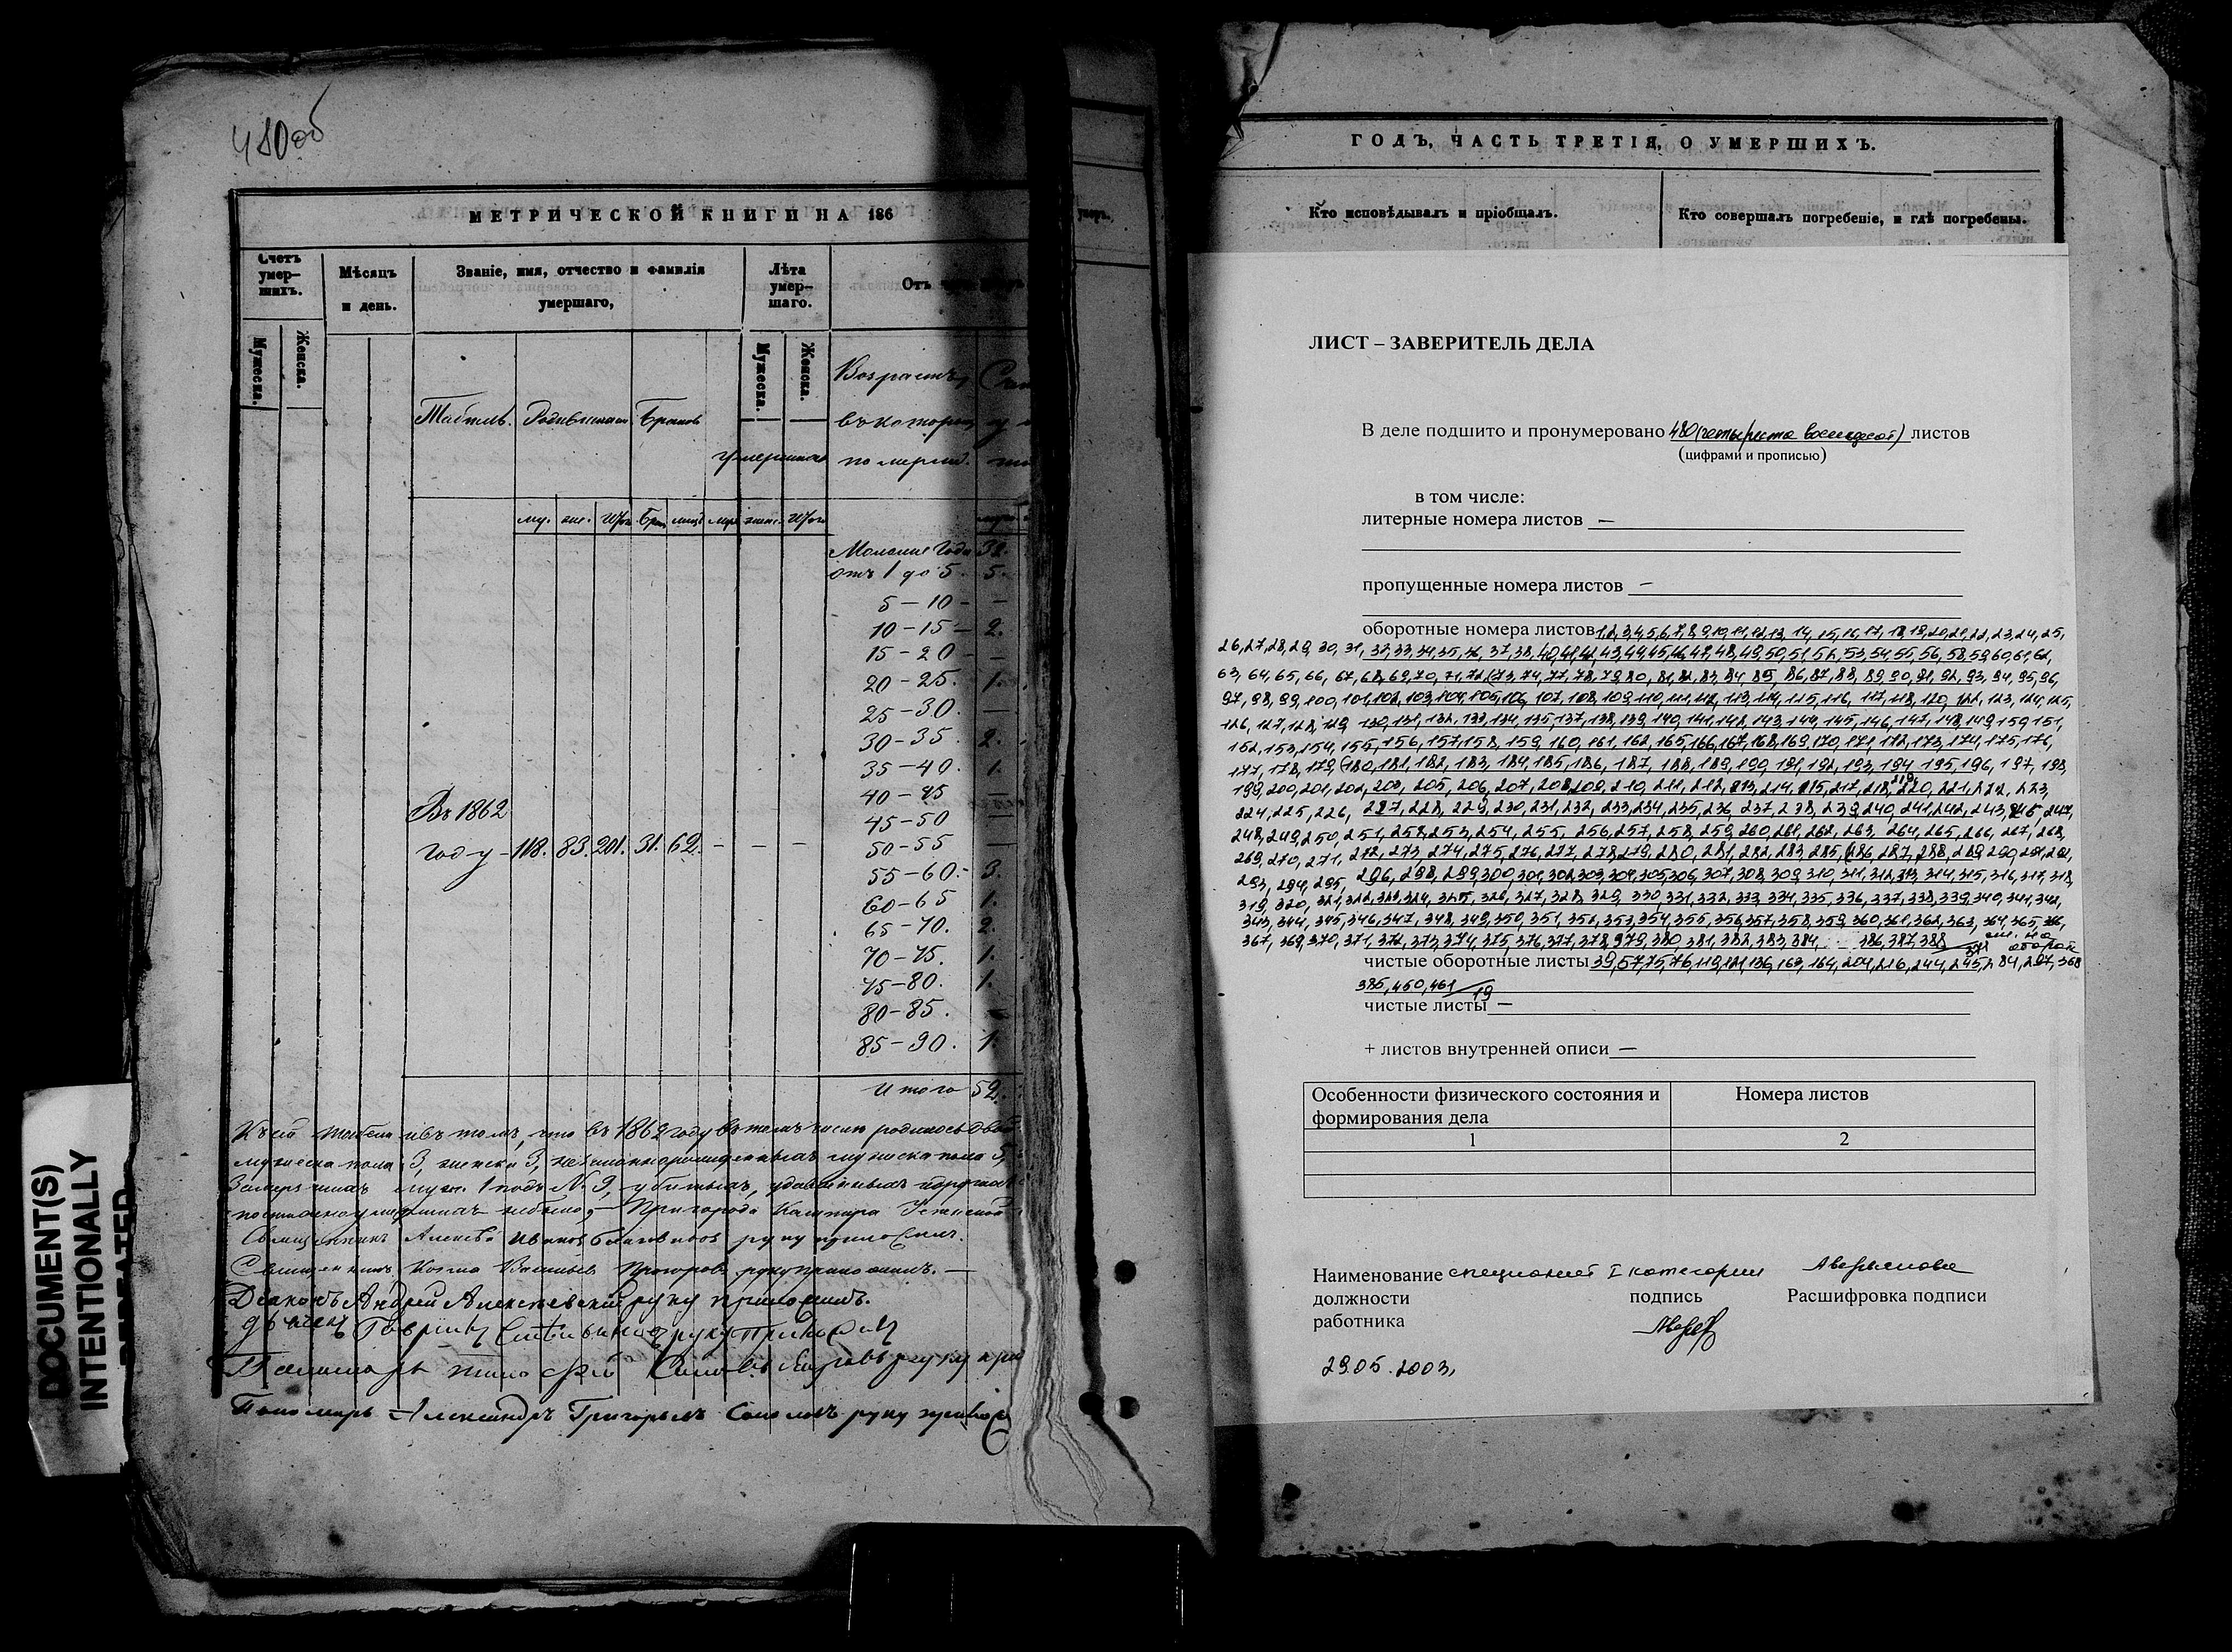 480об
МЕТРИЧЕСКОЙ КНИГИ НА 186
Счетъ умер-шихъ.
Мѣсяцъ и день.
Званіе, имя, отчество и фамилія умершаго,
Лѣта умер-шаго.
Отъ
Мужеска. Женска.
Мужеска. Женска.
Табель. Родившихся Браков умерших
Возрастъ, въ которомъ померли.
му. жен. Итого Брак. лицъ муж. женс. Итого
Моложе года 32.
отъ 1 до 5. 5.
5 – 10 – –
10 – 15 – 2.
15 – 20 – –
20 – 25. 1.
25 – 30. –
30 – 35. 2.
35 – 40. 1.
40 – 45 –
45 – 50 –
50 – 55 –
55 – 60. – 3.
60 – 65 1.
65 – 70. 2.
70 – 75. 1.
75 – 80. 1.
80 – 85. –
85 – 90. 1.
Въ 1862
году – 118. 83. 201. 31. 62. – – –
Итого 52.
что въ 1862 году въ томъ числѣ родилось
мужеска пола 3, женска 3, незаконнорожденныхъ мужеска пола 5,
муж. 1 подъ № 9, убитыхъ,
не было, – При города Кашира
Священникъ Алексѣй Иванов Благовидов руку приложилъ.
Священникъ Козма Васильев руку приложилъ. –
Діаконъ Андрей Алексѣевскій руку приложилъ.
руку приложилъ
Пономарь Александръ Григорьевъ Соколовъ руку прилож
ГОДЪ, ЧАСТЬ ТРЕТІЯ, О УМЕРШИХЪ.
Кто исповѣдывалъ и пріобщалъ.
Кто совершалъ погребеніе, и гдѣ погребены.
ЛИСТ – ЗАВЕРИТЕЛЬ ДЕЛА
В деле подшито и пронумеровано 480 (четыреста восемдесят) листов
(цифрами и прописью)
в том числе:
литерные номера листов –
пропущенные номера листов –
оборотные номера листов 1,2,3,4,5,6,7,8,9,10,11,12,13, 14, 15,16,17, 18,19,20,21,22,23,24,25,
26,27,28,29, 30, 31, 32,33,34,35,36, 37,38,40,41,42,43,44,45,46,47,48,49,50,51,52,53,54,55,56,58,59,60,61,62,
63, 64, 65, 66, 67,68,69,70,71,72,73,74,77,78,79,80, 81,82,83,84,85, 86,87,88,89,90,91,92,93,94,95,96,
97, 98, 99, 100, 101,102,103,104,105,106, 107, 108, 109, 110, 111, 112, 113, 114, 115, 116, 117, 118, 120, 122, 123, 124, 125,
126, 127, 128, 129, 130, 131, 132, 133, 134, 135, 137, 138, 139, 140, 141, 142, 143, 144, 145, 146, 147, 148, 149, 150, 151,
152, 153, 154, 155, 156, 157, 158, 159, 160, 161, 162, 165, 166, 167, 168, 169, 170, 171, 172, 173, 174, 175, 176,
177, 178, 179, 180, 181, 182, 183, 184, 185, 186, 187, 188, 189, 190, 191, 192, 193, 194, 195, 196, 197, 198,
199, 200, 201, 202, 203, 205, 206, 207, 208, 209, 210, 211, 212, 213, 214, 215, 217, 218, 219, 220, 221, 222, 223,
224, 225, 226, 227, 228, 229, 230, 231, 232, 233, 234, 235, 236, 237, 238, 239, 240, 241, 242, 243, 246, 247,
248, 249, 250, 251, 252, 253, 254, 255, 256, 257, 258, 259, 260, 261, 262, 263, 264, 265, 266, 267, 268,
269, 270, 271, 272, 273, 274, 275, 276, 277, 278, 279, 280, 281, 282, 283, 285, 286, 287, 288, 289, 290, 291, 292,
293, 294, 295, 296, 298, 299, 300, 301, 302, 303, 304, 305, 306, 307, 308, 309, 310, 311, 312, 313, 314, 315, 316, 317, 318,
319, 320, 321, 322, 323, 324, 325, 326, 327, 328, 329, 330, 331, 332, 333, 334, 335, 336, 337, 338, 339, 340, 341, 342,
343, 344, 345, 346, 347, 348, 349, 350, 351, 352, 353, 354, 355, 356, 357, 358, 359, 360, 361, 362, 363, 364, 365, 366,
367, 369, 370, 371, 372, 373, 374, 375, 376, 377, 378, 379, 380, 381, 382, 383, 384, 386, 387, 388 см. на обороте
чистые оборотные листы 39, 57, 75, 76, 119, 121, 136, 163, 164, 204, 216, 244, 245, 284, 297, 368
385, 450, 461 / 19
чистые листы –
+ листов внутренней описи –
Особенности физического состояния и формирования дела
Номера листов
1
2
Наименование должности работника специалист I категории
подпись
Аверьянова
Расшифровка подписи
29.05.2003,
DOCUMENT(S)
INTENTIONALLY
REPEATED